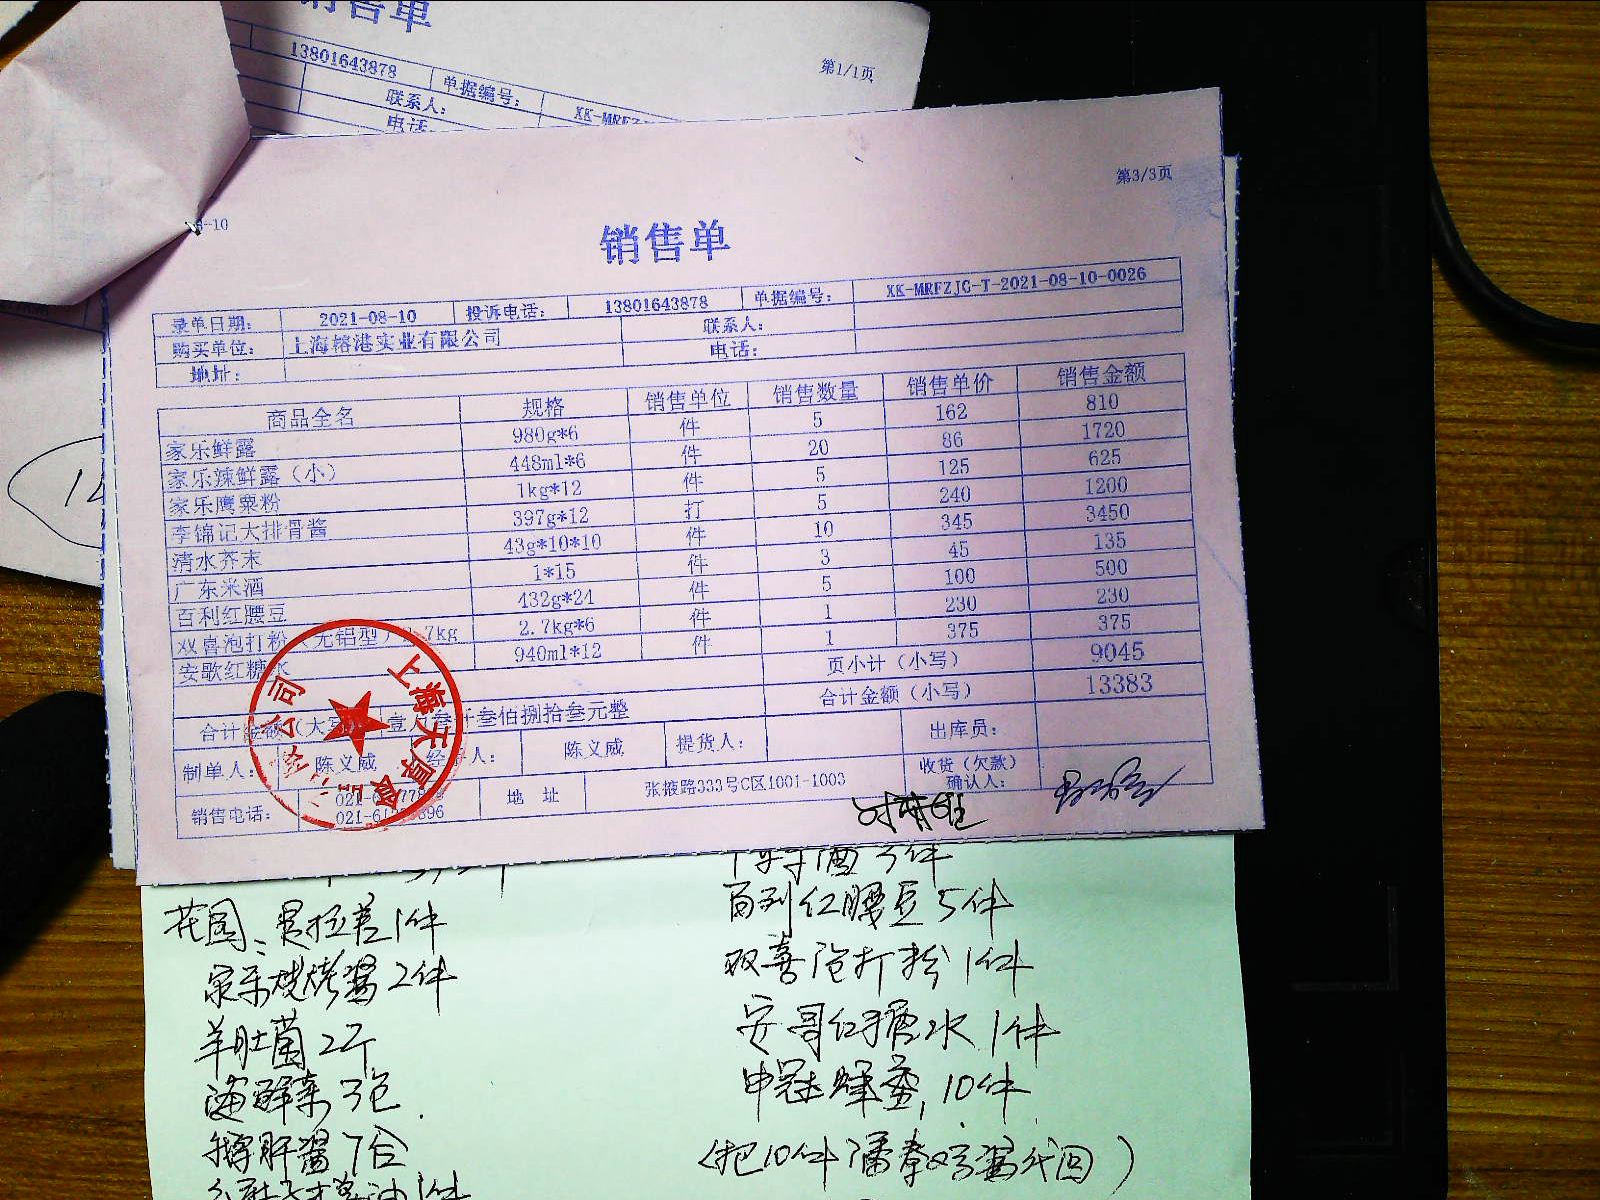 销售单
第1/1页
13801643878 单据编号:
联系人:
电话:
第3/3页
-10
销售单
录单日期: 2021-08-10 投诉电话: 13801643878 单据编号: XK-MRFZJC-T-2021-08-10-0026
购买单位: 上海榕港实业有限公司 联系人:
地址: 电话:
商品全名 规格 销售单位 销售数量 销售单价 销售金额
家乐鲜露 980g*6 件 5 162 810
家乐辣鲜露（小） 448ml*6 件 20 86 1720
家乐鹰粟粉 1kg*12 件 5 125 625
李锦记大排骨酱 397g*12 打 5 240 1200
清水芥末 43g*10*10 件 10 345 3450
广东米酒 1*15 件 3 45 135
百利红腰豆 432g*24 件 5 100 500
双喜泡打粉（无铝型）2.7kg 2.7kg*6 件 1 230 230
安歌红糖水 940ml*12 件 1 375 375
页小计（小写） 9045
合计金额（小写） 13383
合计金额（大写） 壹万叁仟叁佰捌拾叁元整
制单人: 陈义威 经手人: 陈义威 提货人: 出库员:
销售电话: 地 址 张掖路333号C区1001-1003 收货（欠款）确认人:
上海天厚
公司
花园、是拉差1件
家乐烧烤酱2件
羊肚菌2斤
海鲜菜3包
鹅肝酱7合
酒3件
百利红腰豆5件
双喜泡打粉1件
安哥红糖水1件
申冠蜂蜜,10件